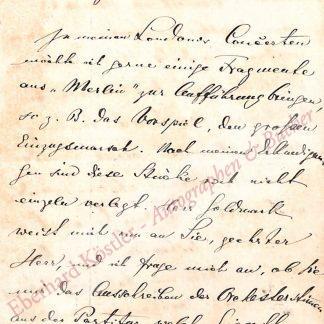 In meinen Londoner Concerten
möchte ich gerne einige Fragmente
aus „Merlin" zur Aufführung bringen
so z. B. das Vorspiel, den großen
Einzugsmarsch. Nach meinen
gen sind diese Stücke noch nicht
einzeln verlegt. Herr Goldmark
weist mich nun an Sie, geehrter
Herr, und ich frage mich an, ob Sie
mir das Ausschreiben der Orchesterstimmen
aus der Partitur
Eberhard Köstler Autographen & Bücher